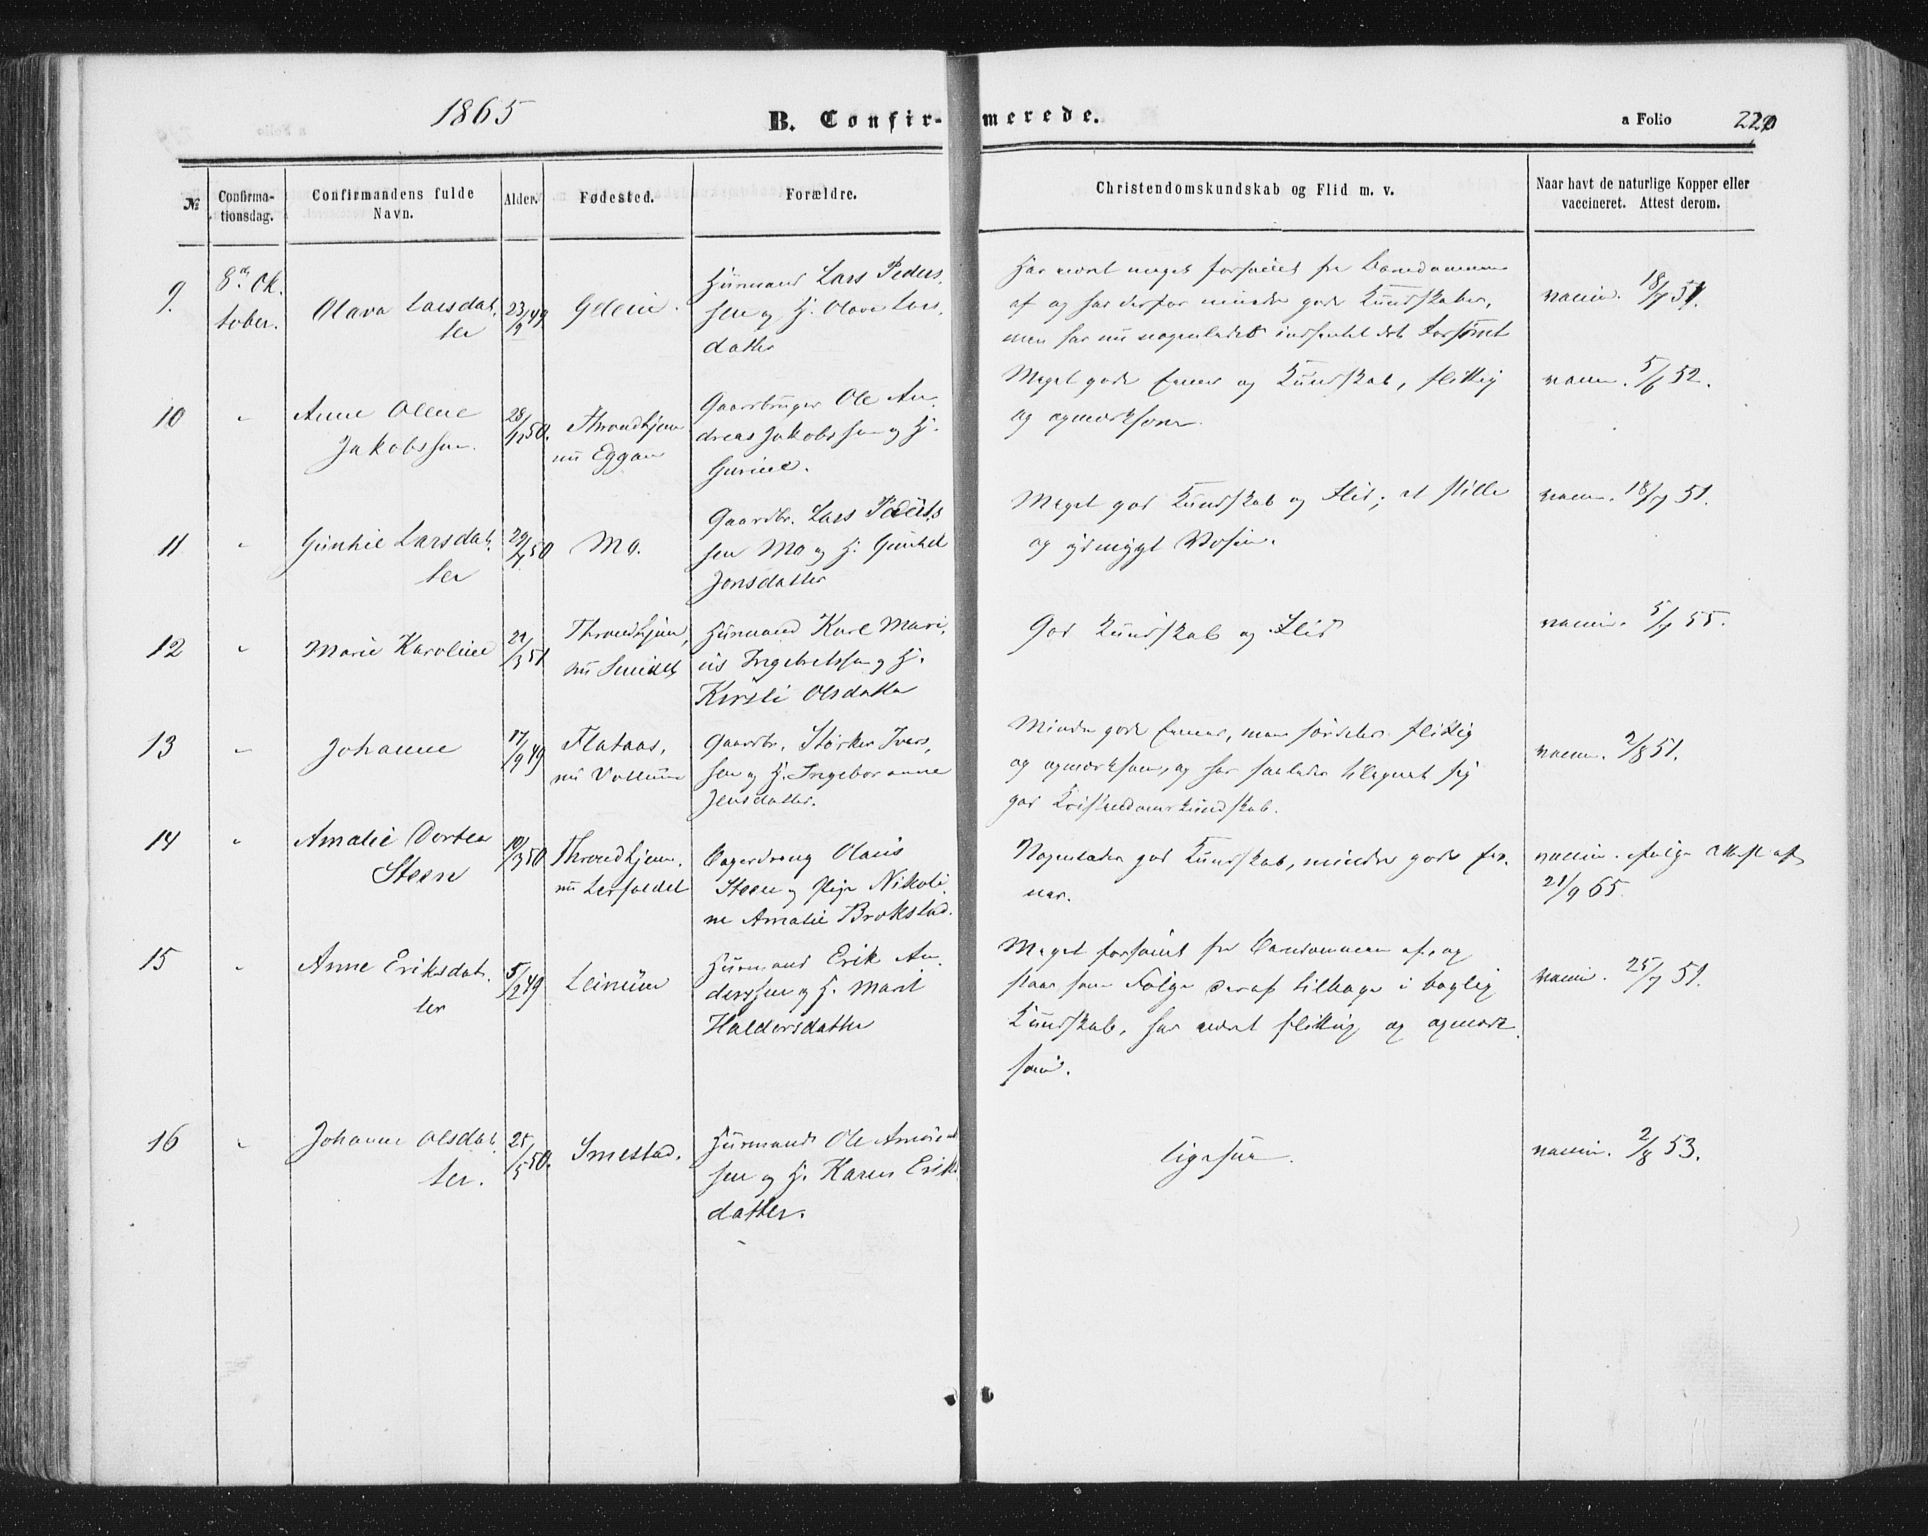 1865
B. Confirmerede.
a Folio
№
Confirma-
tionsdag.
Confirmandens fulde
Navn.
Alder.
Fødested.
Forældre.
Christendomskundskab og Flid m. v.
Naar havt de naturlige Kopper eller
vaccineret. Attest derom.
9.
8de Ok-
tober.
Olava Larsdat-
ter
23/9 49
Huusmand Lars Peders-
sen og H. Olava Lars-
datter
Har været meget forsømt fra Barndommen
af og har derfor mindre gode Kundskaber,
men har nu nogenlunde indhentet det Forsømte
vaccin. 18/7 51.
10
"
Anne Oline
Jakobssen.
28/12 50.
Throndhjem
nu Eggan
Gaardbruger Ole An-
dreas Jakobssen og H.
Gurine.
Meget gode Evner og Kundskab, flittig
og opmærksom.
vaccin. 5/6 52.
11
"
Gunhil Larsdat-
ter
29/7 50
Mo.
Gaardbr. Lars Peders-
sen Mo og H. Gunhil
Jonsdatter
Meget god Kundskab og Flid; et stille
og ydmygt Væsen.
vaccin. 18/7 51.
12
"
Marie Karoline
29/3 51
Throndhjem,
nu
Huusmand Karl Mari-
us Ingebretssen og H.
Kirsti Olsdatter
God Kundskab og Flid
vaccin. 5/7 55.
13
"
Johanne
17/9 49
Flataas,
nu Vollum
Gaardbr. Størker Ivers-
sen og H. Ingeboranne
Jensdatter.
Mindre gode Evner, men særdeles flittig
og opmærksom, og har saaledes tilegnet sig
god Kristendomskundskab.
vaccin. 2/8 51.
14
"
Amalie Dortea
Steen
10/3 50
Throndhjem.
nu Lerfaldet
Bagerdreng Olaus
Steen og Pige Nikoli-
ne Amalie Brokstad.
Nogenlunde god Kundskab, mindre gode Ev-
ner.
vaccin. ifølge Attest af
21/9 65.
15
"
Anne Eriksdat-
ter
5/2 49
Leinum
Huusmand Erik An-
derssen og H. Marit
Haldorsdatter
Meget forsømt fra Barndommen af, og
staar som Følge deraf tilbage i boglig
Kundskab, har været flittig og opmærk-
som.
vaccin. 25/7 51.
16
"
Johanne Olsdat-
ter.
25/5 50.
Smestad.
Huusmand Ole
sen og H. Karen Eriks-
datter.
ligesaa.
vaccin. 2/8 53.